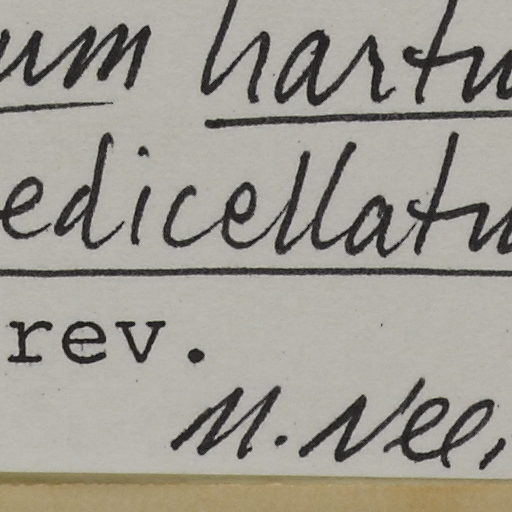 um hartw
edicellatu
rev.
M. Nee,